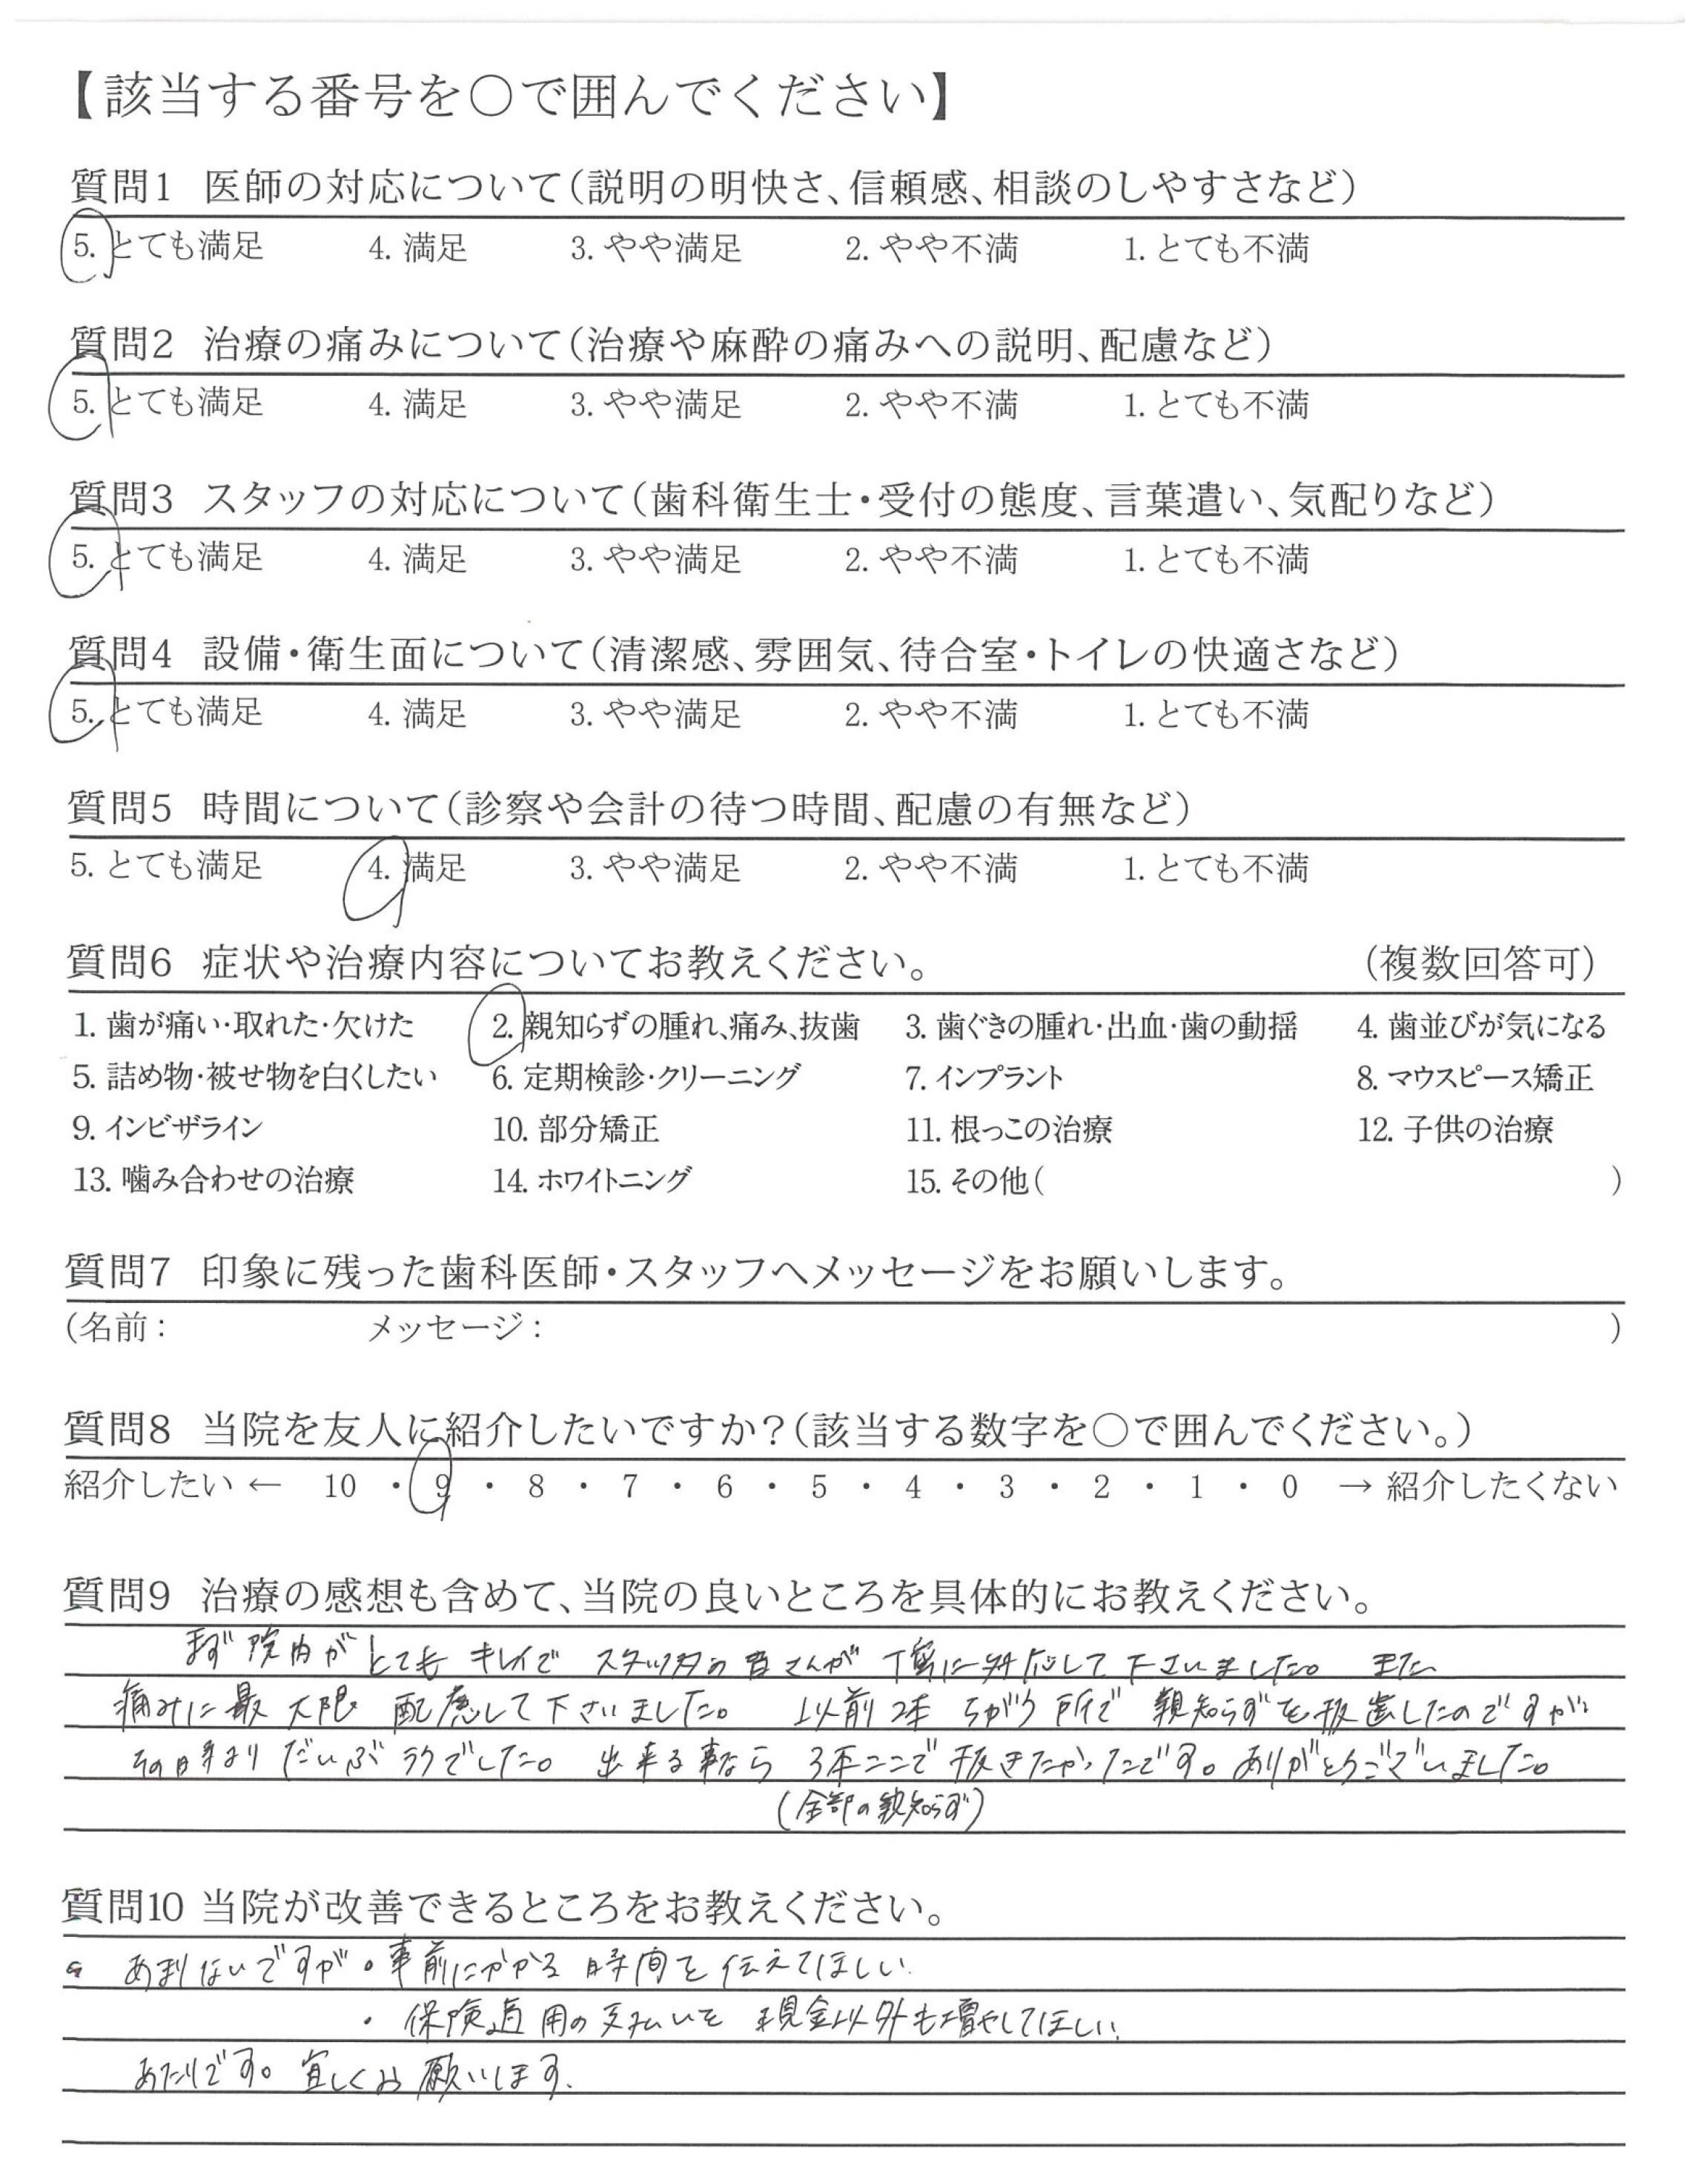 【該当する番号を○で囲んでください】
質問1 医師の対応について(説明の明快さ、信頼感、相談のしやすさなど)
5. とても満足 4. 満足 3. やや満足 2. やや不満 1. とても不満
質問2 治療の痛みについて(治療や麻酔の痛みへの説明、配慮など)
5. とても満足 4. 満足 3. やや満足 2. やや不満 1. とても不満
質問3 スタッフの対応について(歯科衛生士・受付の態度、言葉遣い、気配りなど)
5. とても満足 4. 満足 3. やや満足 2. やや不満 1. とても不満
質問4 設備・衛生面について(清潔感、雰囲気、待合室・トイレの快適さなど)
5. とても満足 4. 満足 3. やや満足 2. やや不満 1. とても不満
質問5 時間について(診察や会計の待つ時間、配慮の有無など)
5. とても満足 4. 満足 3. やや満足 2. やや不満 1. とても不満
質問6 症状や治療内容についてお教えください。 (複数回答可)
1. 歯が痛い・取れた・欠けた 2. 親知らずの腫れ、痛み、抜歯 3. 歯ぐきの腫れ・出血・歯の動揺 4. 歯並びが気になる
5. 詰め物・被せ物を白くしたい 6. 定期検診・クリーニング 7. インプラント 8. マウスピース矯正
9. インビザライン 10. 部分矯正 11. 根っこの治療 12. 子供の治療
13. 噛み合わせの治療 14. ホワイトニング 15. その他( )
質問7 印象に残った歯科医師・スタッフへメッセージをお願いします。
(名前: メッセージ: )
質問8 当院を友人に紹介したいですか?(該当する数字を○で囲んでください。)
紹介したい ← 10 ・ 9 ・ 8 ・ 7 ・ 6 ・ 5 ・ 4 ・ 3 ・ 2 ・ 1 ・ 0 → 紹介したくない
質問9 治療の感想も含めて、当院の良いところを具体的にお教えください。
まず院内がとてもキレイでスタッフの皆さんが丁寧に対応して下さいました。また
痛みに最大限配慮して下さいました。以前2本ちがう所で親知らずを抜歯したのですが
その時よりだいぶラクでした。出来る事なら3本ここで抜きたかったです。ありがとうございました。
(全部の親知らず)
質問10 当院が改善できるところをお教えください。
あまりないですが・事前にかかる時間を伝えてほしい
・保険適用の支払いを現金以外も増やしてほしい
あたりです。宜しくお願いします。